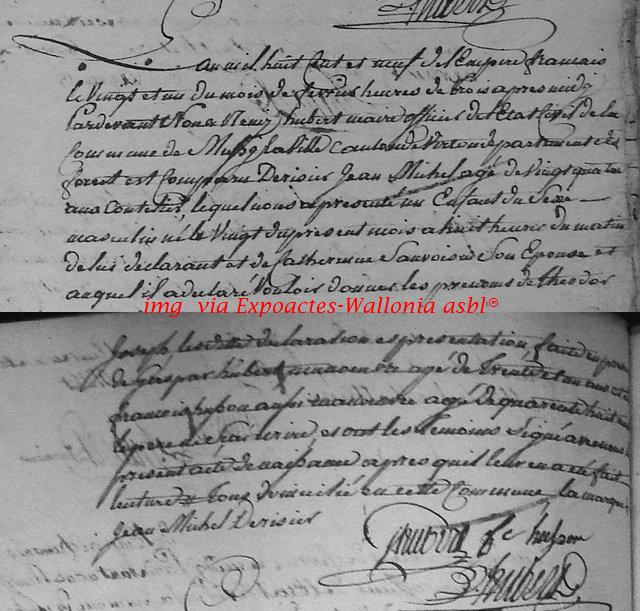 an mil huit cent et neuf de l'Empire français
le Vingt et un du mois de heures de trois apres midy
Pardevant Nous Remy hubert maire officier de l'Etat Civil de la
Commune de Mussy la Ville canton de Virton departement des
forest est comparu Derisier Jean Michel agé de Vingt quatre
ans lequel nous a presenté un Enfant du Sexe
masculin né le Vingt du present mois a huit heures du matin
de lui declarant et de Catherinne Son Epouse et
auquel il a declaré Vouloir donner les prenoms de theodor
img via Expoactes-Wallonia asbl®
Joseph, les dittes declaration et presentation faite en presence
de Gaspar hubert agé de trente et un ans et
francois husson aussi agé de quarente huit ans
le pere ne sçai ecrire, et ont les temoins Signé avec nous le
present acte de naissance apres qu'il leur en a été fait
lecture Tous domicilié en cette Commune la marque
Jean Michel Derisier
Ghubert f c husson
Rhubert